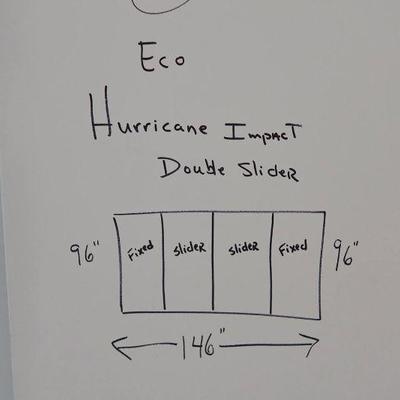 Eco
Hurricane Impact
Double Slider
96" Fixed Slider Slider Fixed 96"
146"